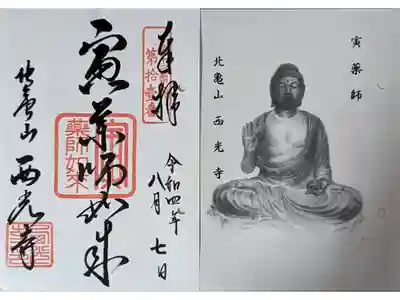 奉拝
第拾壱番
令和四年
八月七日
寅薬師如来
薬師如来
北亀山 西光寺
寅薬師
北亀山 西光寺